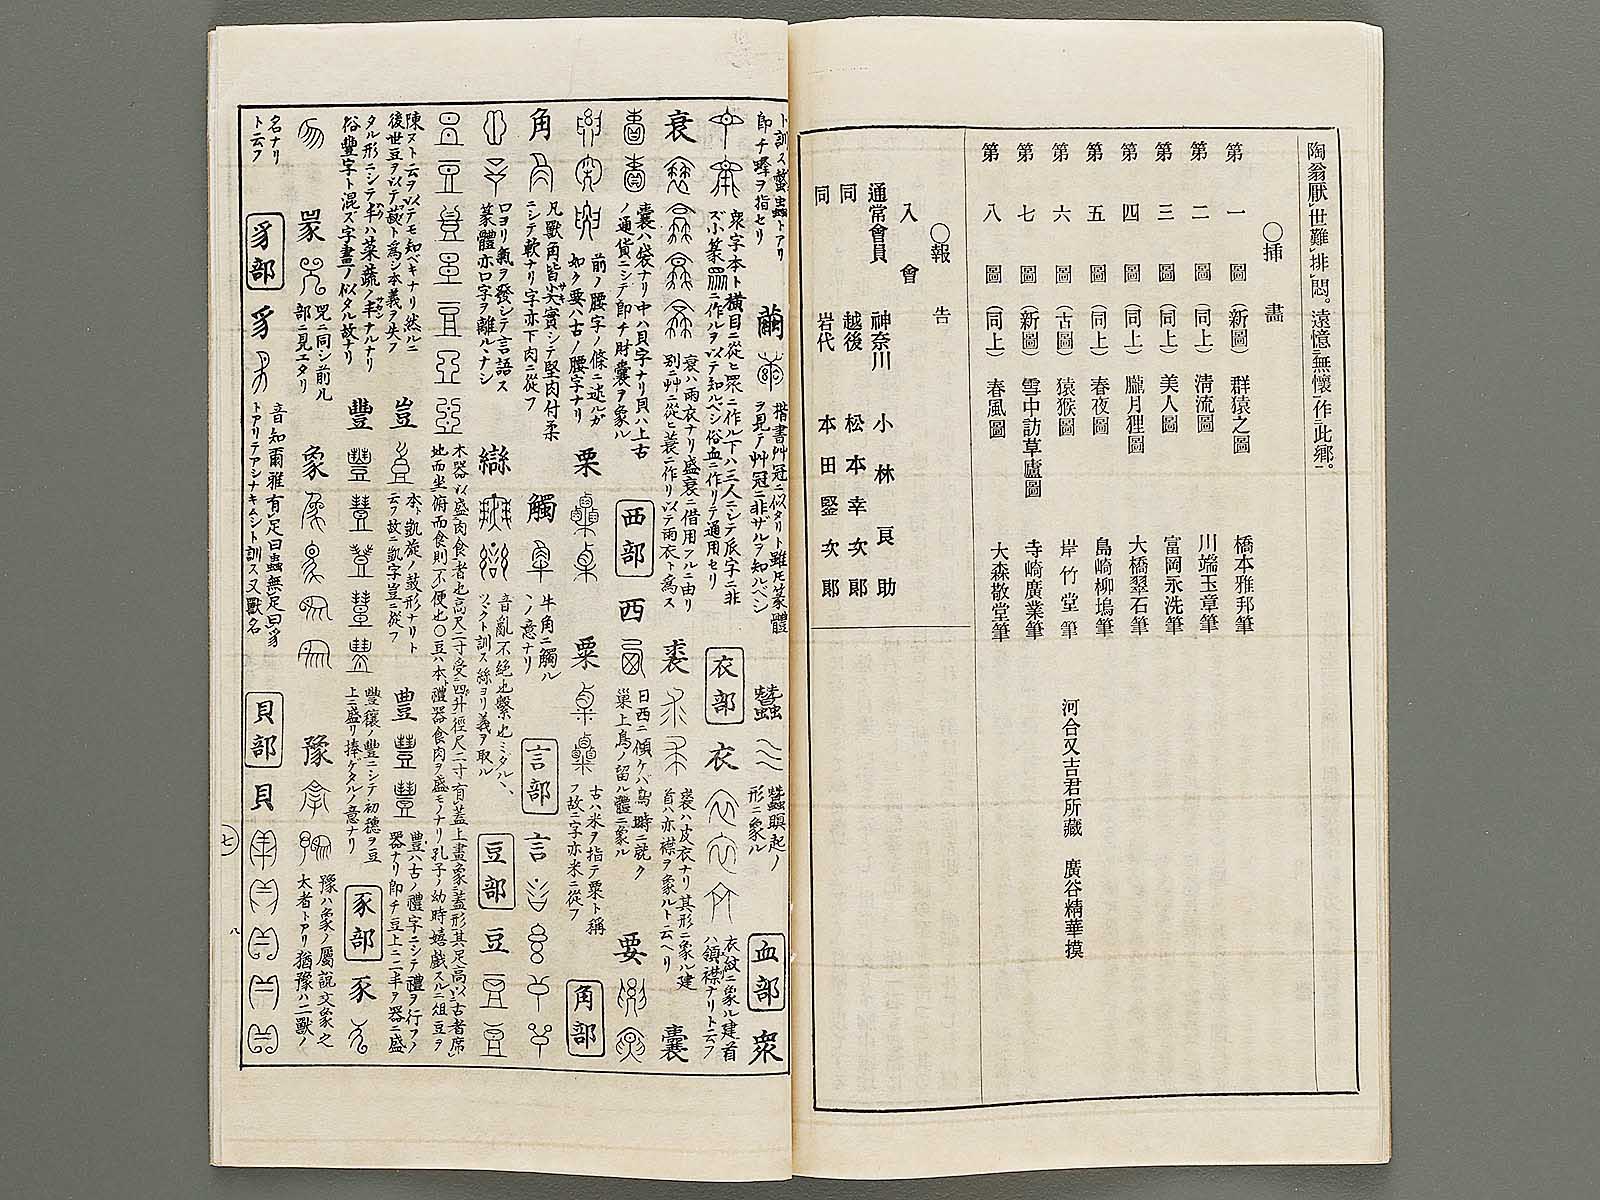 陶翁厭世難排悶。遠憶無懷作此鄕。
〇揷畫
第一圖（新圖）群猿之圖 橋本雅邦筆
第二圖（同上）淸流圖 川端玉章筆
第三圖（同上）美人圖 富岡永洗筆
第四圖（同上）朧月狸圖 大橋翠石筆
第五圖（同上）春夜圖 島崎柳塢筆
第六圖（古圖）猿猴圖 岸竹堂筆 河合又吉君所藏 廣谷精華摸
第七圖（新圖）雪中訪草廬圖 寺崎廣業筆
第八圖（同上）春風圖 大森敬堂筆
〇報告
入會
通常會員 神奈川 小林良助
同 越後 松本幸次郞
同 岩代 本田堅次郞
ト訓ス蟄蟲トアリ
即チ蜂ヲ指セリ
繭 楷書艸冠ニ似タリト雖モ篆體
ヲ見テ艸冠ニ非ザルヲ知ルベシ
蠶 蠶瞑起ノ
形ニ象ル
血部 衆
衆字本ト橫目ニ從ヒ眾ニ作ル下ハ三人ニシテ𠂢字ニ非
ズ小篆眾ニ作ルヲ以テ知ルベシ俗血ニ作リテ通用セリ
衣部 衣 衣紋ニ象ル建首
ハ領襟ナリト云フ
衰 衰ハ雨衣ナリ盛衰ニ借用アルニ由リ
別ニ艸ニ從ヒ蓑ニ作リ以テ雨衣ト爲ス
裘 裘ハ皮衣ナリ其形ニ象ル建
首ハ亦襟ヲ象ルト云ヘリ
囊
囊ハ袋ナリ中ハ貝字ナリ貝ハ上古
ノ通貨ニシテ即チ財囊ヲ象ル
西部 西 日西ニ傾ケハ鳥時ニ就ク
巢上鳥ノ留ル體ニ象ル
要
前ノ腰字ノ條ニ述ルガ
如ク要ハ古ノ腰字ナリ
栗 粟 古ハ米ヲ指テ粟ト稱
フ故ニ字亦米ニ從フ
角部
角 凡獸角皆尖實シテ堅肉付柔
ニシテ軟ナリ字亦下肉ニ從フ
觸 牛角ニ觸ル
ノ意ナリ
言部 言
口ヨリ氣ヲ發シテ言語ス
篆體亦口字ヲ離ルヽナシ
䜌 音亂不絕也繫也ミダル、
ツヾクト訓ス絲ヨリ義ヲ取ル
豆部 豆
木器以盛肉食者也高尺二寸受四升徑尺二寸有蓋上畫象蓋形其足高以古者席
地而坐俯而食則不便也〇豆ハ本ト禮器食肉ヲ盛モノナリ孔子ノ幼時嬉戲スルニ俎豆ヲ
陳ヌト云ヲ以テモ知ベキナリ然ルニ
後世豆ヲ以テ菽ト爲シ本義ヲ失フ
豈 本ト凱旋ノ鼓形ナリト
云フ故ニ凱字豈ニ從フ
豊 豊ハ古ノ禮字ニシテ禮ヲ行フノ
器ナリ即チ豆上ニ二丰ヲ器ニ盛
タル形ニシテ丰ハ菜蔬ノ丰ナルナリ
俗豐字ト混ズ字畫ノ似タル故ナリ
豐 豐穰ノ豐ニシテ初穗ヲ豆
上ニ盛リ捧ゲタルノ意ナリ
豕部 豕
㒸 兕ニ同シ前ル
部ニ見エタリ
象 豫 豫ハ象ノ屬說文象之
大者トアリ猶豫ハ二獸ノ
名ナリ
ト云フ
豸部 豸 音知爾雅有足曰蟲無足曰豸
トアリテアシナキムシト訓ス又獸名
貝部 貝
七
八